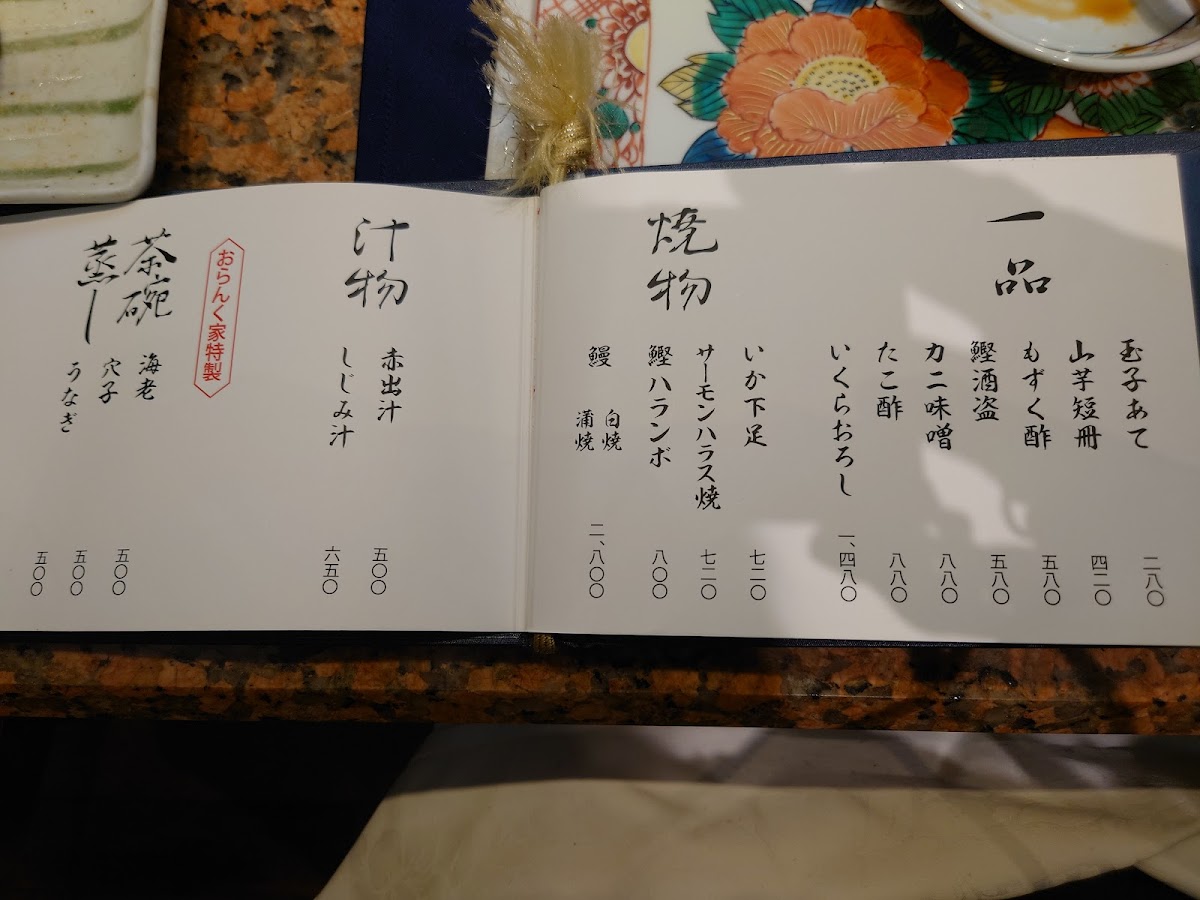 一品
玉子あて 二八〇
山芋短冊 四二〇
もずく酢 五八〇
鰹酒盗 五八〇
カニ味噌 八八〇
たこ酢 八八〇
いくらおろし 一、四八〇
焼物
いか下足 七二〇
サーモンハラス焼 七二〇
鰹ハランボ 八〇〇
鰻 白焼 蒲焼 二、八〇〇
汁物
赤出汁 五〇〇
しじみ汁 六五〇
おらんく家特製
茶碗蒸し
海老 五〇〇
穴子 五〇〇
うなぎ 五〇〇